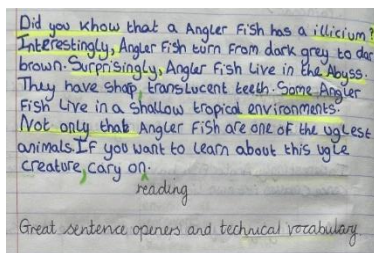 Did you know that a Angler Fish has a illicium?
Interestingly, Angler Fish turn From dark grey to dar
brown. Surprisingly, Angler Fish Live in the Abyss.
They have shap, translucent teeth. Some Angler
Fish Live in a shallow tropical environments.
Not only that Angler Fish are one of the uglest
animals. IF you want to learn about this ugle
creature, cary on.
reading
Great sentence openers and technical vocabulary.